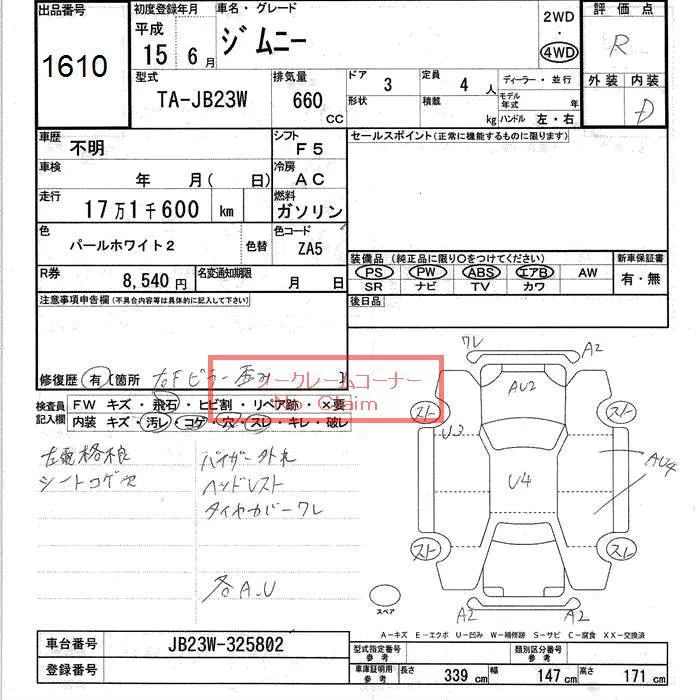 出品番号
1610
初度登録年月
平成
15 6 月
車名・グレード
ジムニー
2WD
・
4WD
評価点
R
型式
TA-JB23W
排気量
660
CC
ドア 3 定員 4 人
形状 積載 kg
ディーラー・並行
モデル年式 年
ハンドル 左・右
外装 内装
D
車歴
不明
シフト
F5
セールスポイント(正常に機能するものに限ります)
車検
年 月( 日)
冷房
AC
走行
17万1千600 km
燃料
ガソリン
色
パールホワイト2
色替
色コード
ZA5
装備品(純正品に限り○をつけてください)
新車保証書
PS PW ABS エアB AW
SR ナビ TV カワ
有・無
R券
8,540 円
名変通知期限
月 日
後日品
注意事項申告欄(不具合内容等は具体的に記入して下さい)
修復歴 有 [箇所 右Fピラー歪み ]
ノークレームコーナー
No Claim
検査員記入欄
FW キズ・飛石・ヒビ割・リペア跡・×要
内装 キズ・汚レ・コゲ・穴・スレ・キレ・破レ
バイザー外れ
シートコゲ穴
ヘッドレスト
タイヤカバーワレ
各A.U
ワレ
A2
AU2
スト
スト
U3
U4
AU4
スト
スト
A2
A2
スペア
A-キズ E-エクボ U-凹み W-補修跡 S-サビ C-腐食 XX-交換済
車台番号
JB23W-325802
登録番号
型式指定番号
参考
類別区分番号
参考
車庫証明用
参考
長さ 339 cm 幅 147 cm 高さ 171 cm